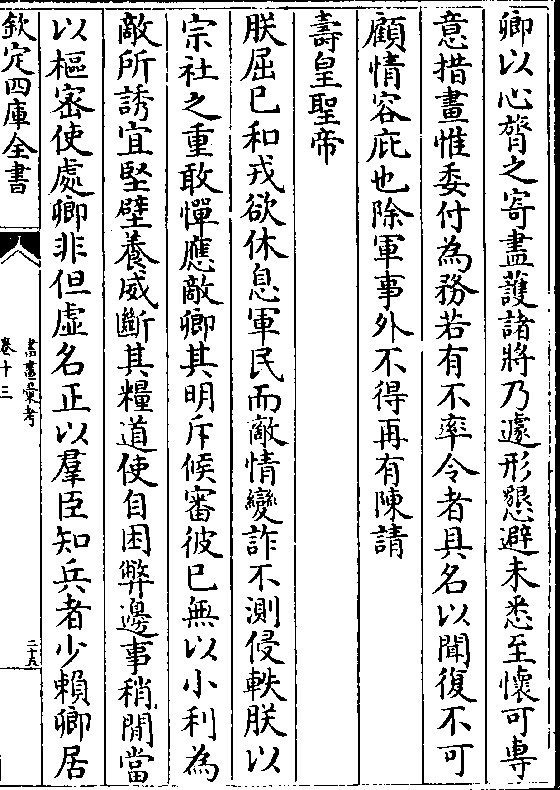 卿以心膂之寄盡護諸將乃遽形懇避未悉至懷可專
意措畫惟委付為務若有不率令者具名以聞復不可
顧情容庇也除軍事外不得再有陳請
壽皇聖帝
朕屈已和戎欲休息軍民而敵情變詐不測侵軼朕以
宗社之重敢憚應敵卿其明斥候審彼已無以小利為
敵所誘宜堅壁養威斷其糧道使自困弊邊事稍閒當
以樞密使處卿非但虛名正以羣臣知兵者少賴卿居
欽定四庫全書
書畫彙考
卷十三
二十九